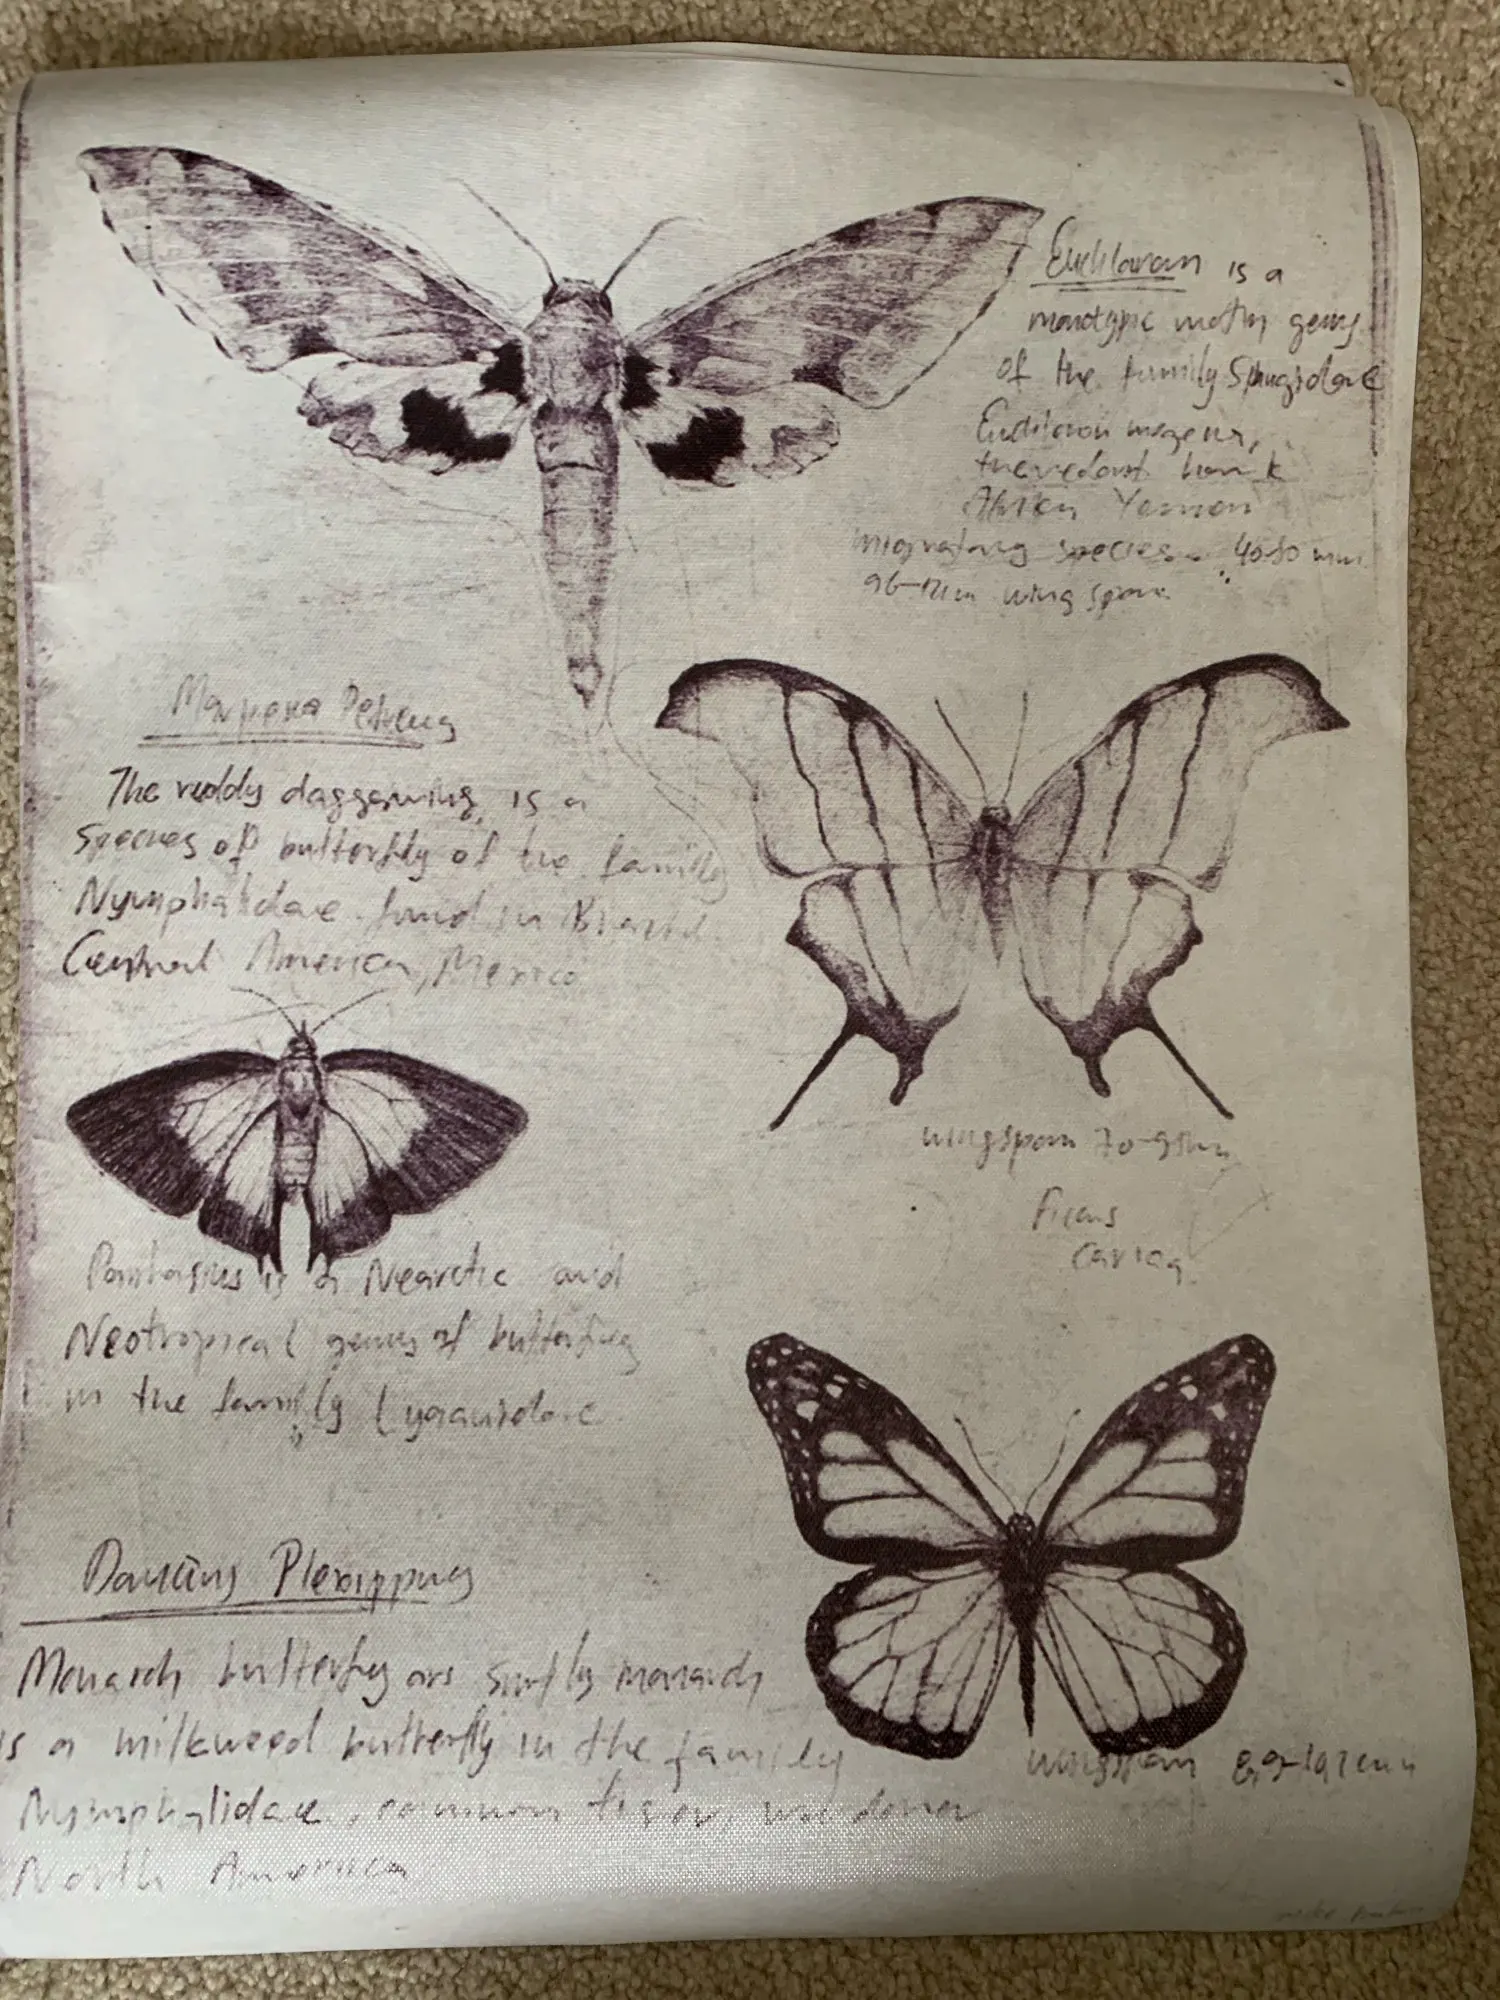 Euchloron is a
monotypic moth genus
of the family Sphingidae
Euchloron megaera,
Yemen
migratory species
wing span
Marpesia Petreus
The ruddy daggerwing, is a
species of butterfly of the family
Nymphalidae found in Brazil
Central America, Mexico
wingspan 70-95mm
Ficus
carica
is a Nearctic and
Neotropical genus of butterfly
in the family Lycaenidae
Danaus Plexippus
Monarch butterfly or simply monarch
is a milkweed butterfly in the family
Nymphalidae, common tiger, wanderer
wingspan
North America